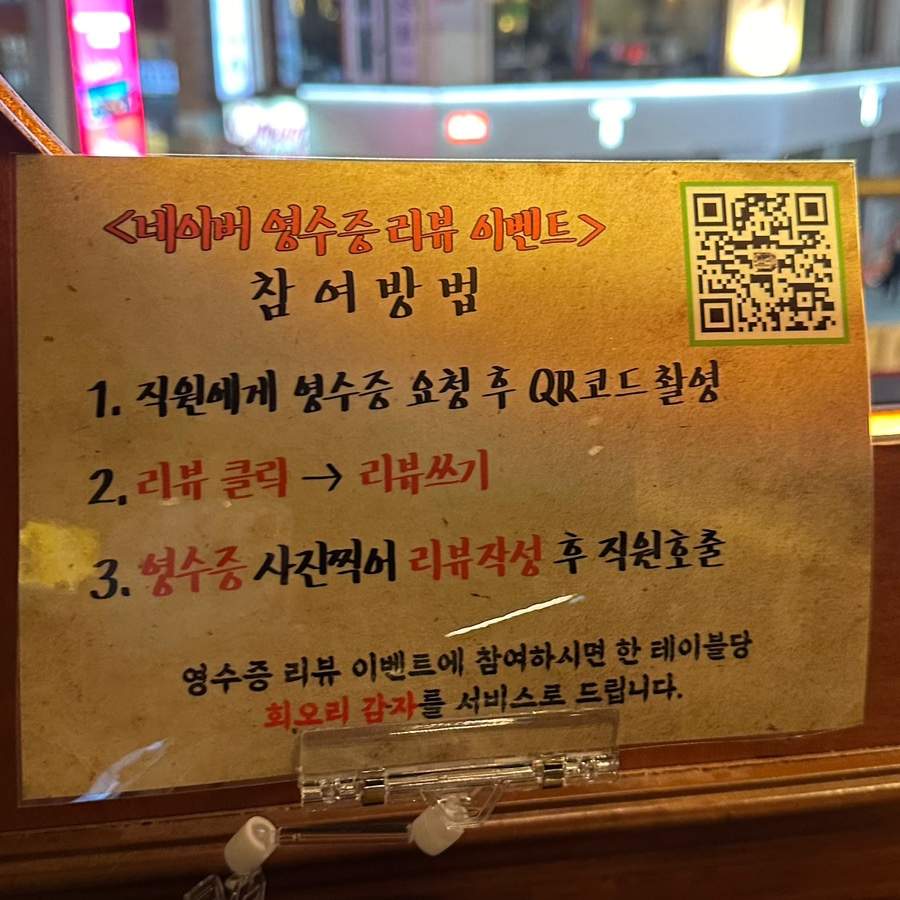 <네이버 영수증 리뷰 이벤트>
참여방법
1. 직원에게 영수증 요청 후 QR코드 촬영
2. 리뷰 클릭 → 리뷰쓰기
3. 영수증 사진찍어 리뷰작성 후 직원호출
영수증 리뷰 이벤트에 참여하시면 한 테이블당
회오리 감자를 서비스로 드립니다.